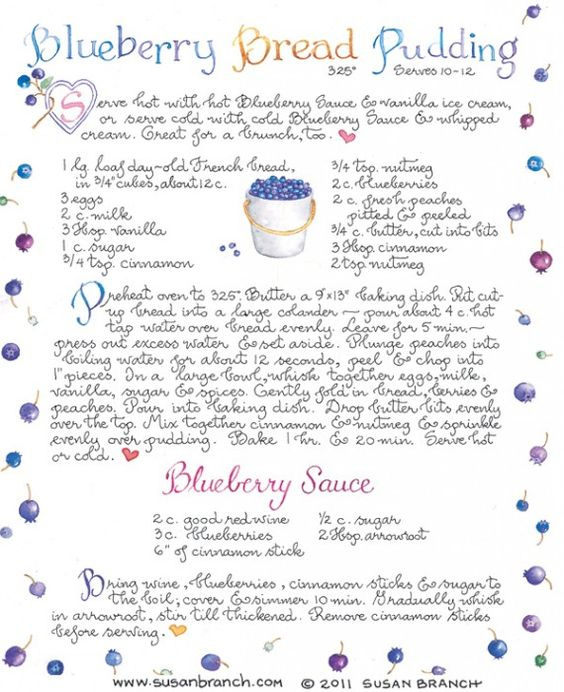 Blueberry Bread Pudding
325° Serves 10-12
Serve hot with hot Blueberry Sauce & vanilla ice cream,
or serve cold with cold Blueberry Sauce & whipped
cream. Great for a brunch, too.
1 lg. loaf day-old French bread,
in 3/4" cubes, about 12 c.
3 eggs
2 c. milk
3 Tbsp. vanilla
1 c. sugar
3/4 tsp. cinnamon
3/4 tsp. nutmeg
2 c. blueberries
2 c. fresh peaches
pitted & peeled
3/4 c. butter, cut into bits
3 Tbsp. cinnamon
2 tsp. nutmeg
Preheat oven to 325°. Butter a 9"x13" baking dish. Put cut-
up bread into a large colander ~ pour about 4 c. hot
tap water over bread evenly. Leave for 5 min. ~
press out excess water & set aside. Plunge peaches into
boiling water for about 12 seconds, peel & chop into
1" pieces. In a large bowl, whisk together eggs, milk,
vanilla, sugar & spices. Gently fold in bread, berries &
peaches. Pour into baking dish. Drop butter bits evenly
over the top. Mix together cinnamon & nutmeg & sprinkle
evenly over pudding. Bake 1 hr. & 20 min. Serve hot
or cold.
Blueberry Sauce
2 c. good red wine
3 c. blueberries
6" of cinnamon stick
1/2 c. sugar
2 Tbsp. arrowroot
Bring wine, blueberries, cinnamon sticks & sugar to
the boil; cover & simmer 10 min. Gradually whisk
in arrowroot, stir till thickened. Remove cinnamon sticks
before serving.
www.susanbranch.com © 2011 SUSAN BRANCH